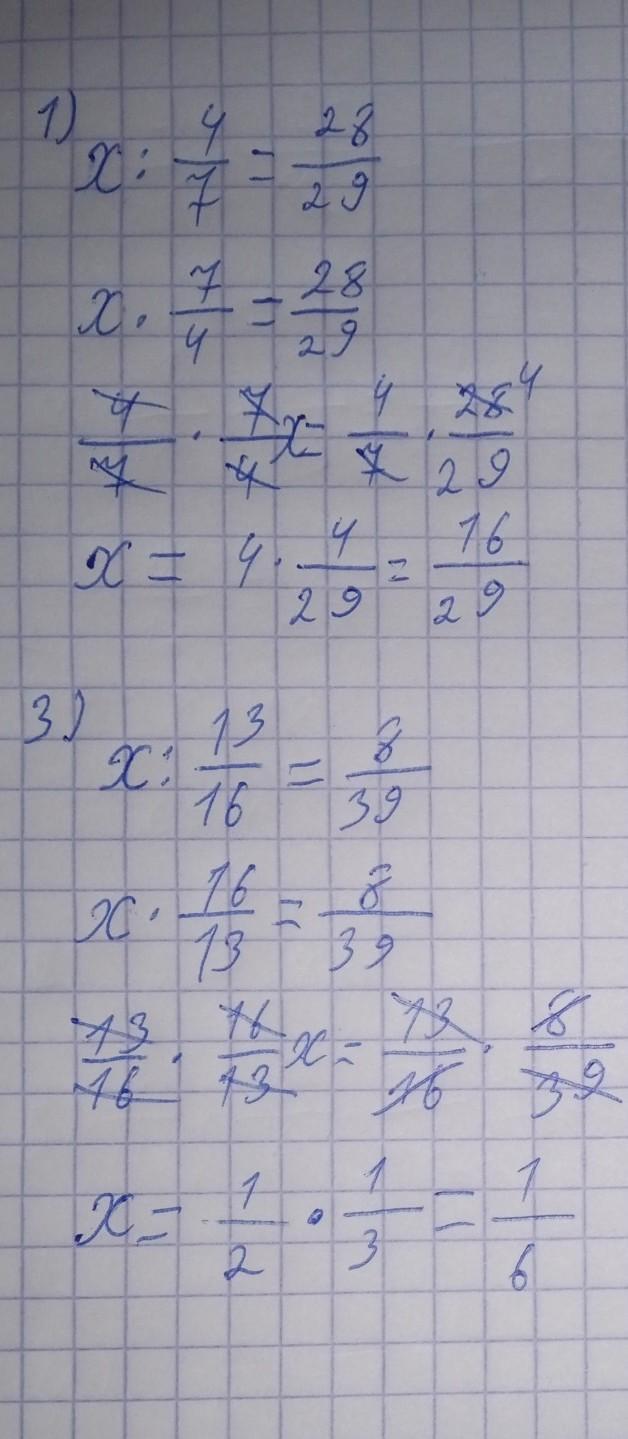 1)
x : 4/7 = 28/29
x · 7/4 = 28/29
4/7 · 7/4 x = 4/7 · 28/29 4
x = 4 · 4/29 = 16/29
3)
x : 13/16 = 8/39
x · 16/13 = 8/39
13/16 · 16/13 x = 13/16 · 8/39
x = 1/2 · 1/3 = 1/6